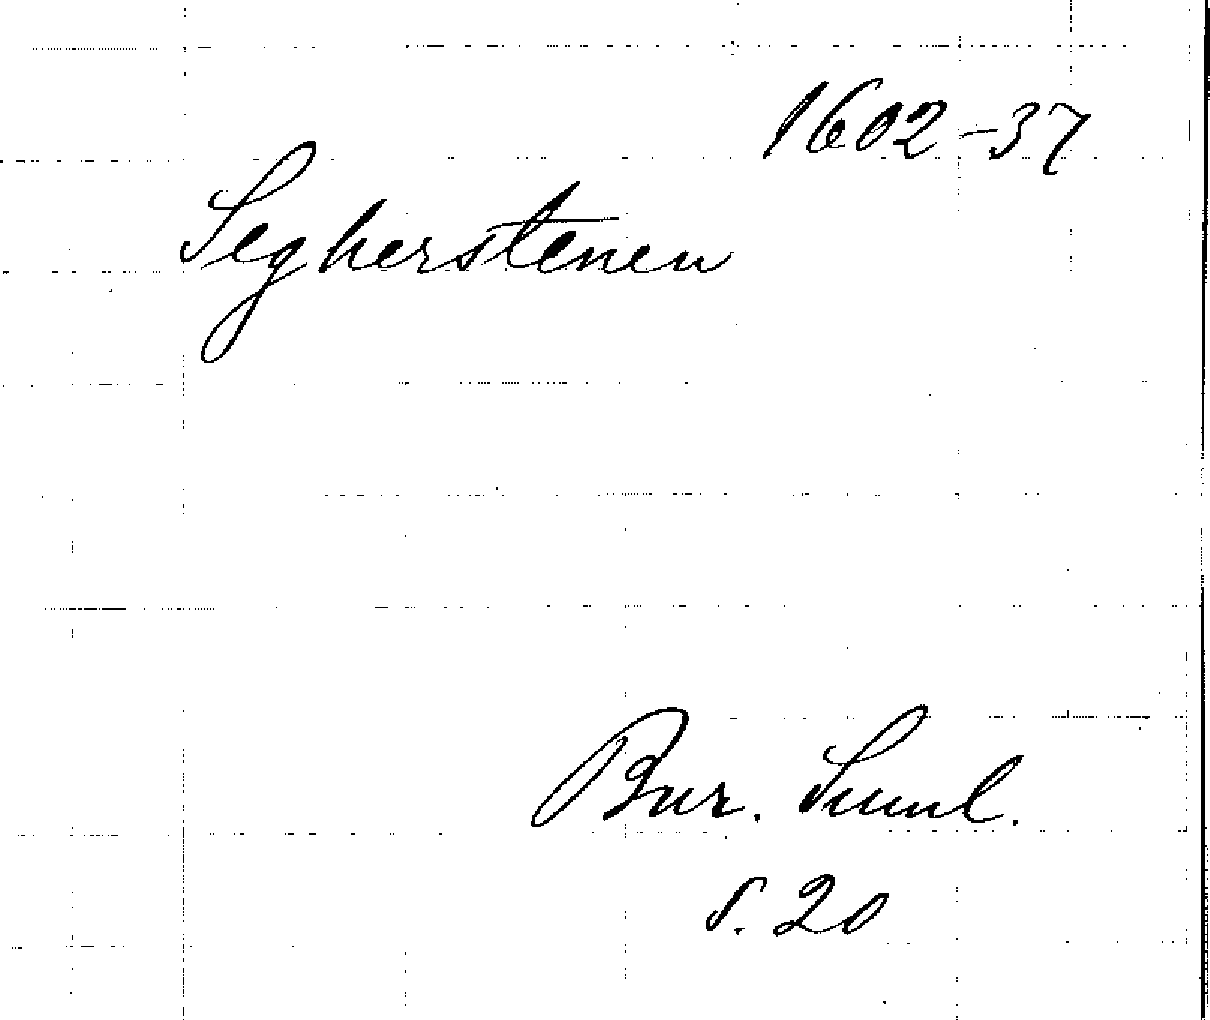 1602-37
Segherstenen
Bur. Suml.
s. 20